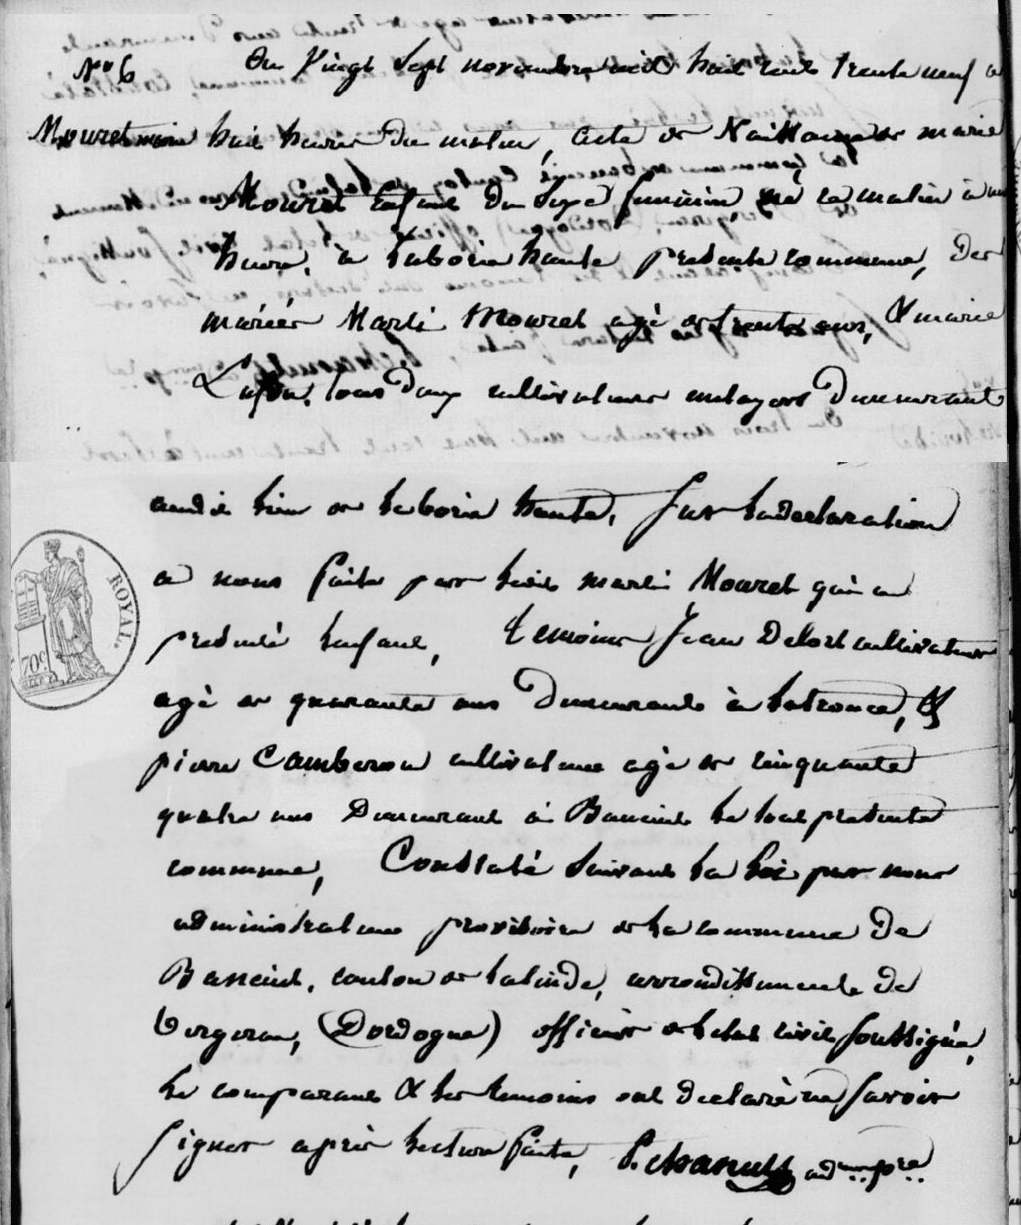 N° 6
Du vingt Sept novembre mil huit cent trente neuf a
Mouret marie
huit heures du matin, acte de Naissance de marie
Mouret Enfant du Sexe feminin, né ce matin à une
heure, à Laborie haute presente commune, des
mariés Marti Mouret agé de trente ans, & marie
tous Deux cultivateurs metayers Demeurant
audit lieu de Laborie haute, Sur La declaration
a nous faite par Ledit marti Mouret qui a
presenté Lenfant, temoins Jean Delort cultivateur
agé de quarante ans Demeurant à Latronce, &
pierre Camberou cultivateur agé de cinquante
quatre ans Demeurant à Baneuil Le tout presente
commune, Constaté Suivant La Loi par nous
administrateur provisoire de La commune De
Baneuil, canton de Lalinde, arrondissement De
Bergerac, (Dordogne) officier de Letat civil Soussigné,
Le comparant & Les temoins ont declaré ne Savoir
Signer aprés Lecture faite, adm pre
ROYAL.
70c